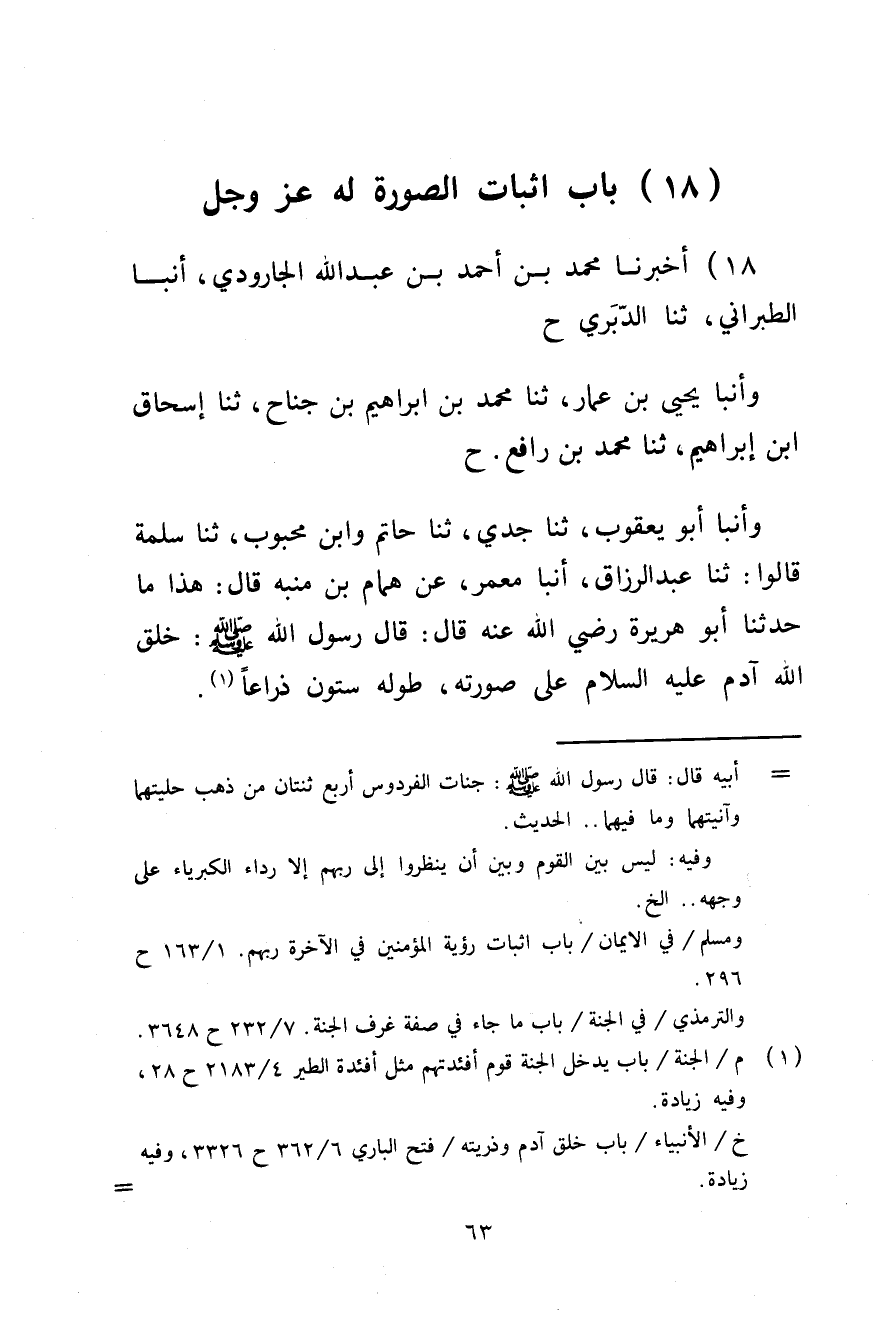 (١٨) باب اثبات الصورة له عز وجل
١٨) أخبرنـا محمد بـن أحمد بـن عبـدالله الجارودي، أنبـا
الطبراني، ثنا الدّبَري ح
وأنبا يحيى بن عمار، ثنا محمد بن ابراهيم بن جناح، ثنا إسحاق
ابن إبراهيم، ثنا محمد بن رافع. ح
وأنبا أبو يعقوب، ثنا جدي، ثنا حاتم وابن محبوب، ثنا سلمة
قالوا: ثنا عبدالرزاق، أنبا معمر، عن همام بن منبه قال: هذا ما
حدثنا أبو هريرة رضي الله عنه قال: قال رسول الله ﷺ: خلق
الله آدم عليه السلام على صورته، طوله ستون ذراعاً(١).
= أبيه قال: قال رسول الله ﷺ: جنات الفردوس أربع ثنتان من ذهب حليتهما
وآنيتهما وما فيهما.. الحديث.
وفيه: ليس بين القوم وبين أن ينظروا إلى ربهم إلا رداء الكبرياء على
وجهه.. الخ.
ومسلم / في الايمان / باب اثبات رؤية المؤمنين في الآخرة ربهم. ١٦٣/١ ح
٢٩٦.
والترمذي / في الجنة / باب ما جاء في صفة غرف الجنة. ٢٣٢/٧ ح ٣٦٤٨.
(١) م / الجنة / باب يدخل الجنة قوم أفئدتهم مثل أفئدة الطير ٢١٨٣/٤ ح ٢٨،
وفيه زيادة.
خ / الأنبياء / باب خلق آدم وذريته / فتح الباري ٣٦٢/٦ ح ٣٣٢٦، وفيه
زيادة. =
٦٣